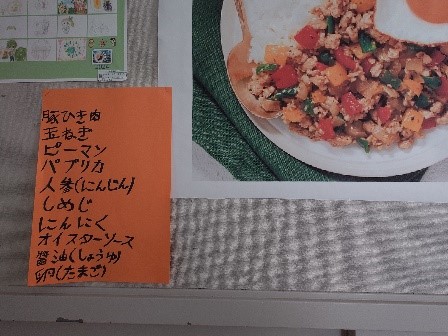 豚ひき肉
玉ねぎ
ピーマン
パプリカ
人参(にんじん)
しめじ
にんにく
オイスターソース
醤油(しょうゆ)
卵(たまご)